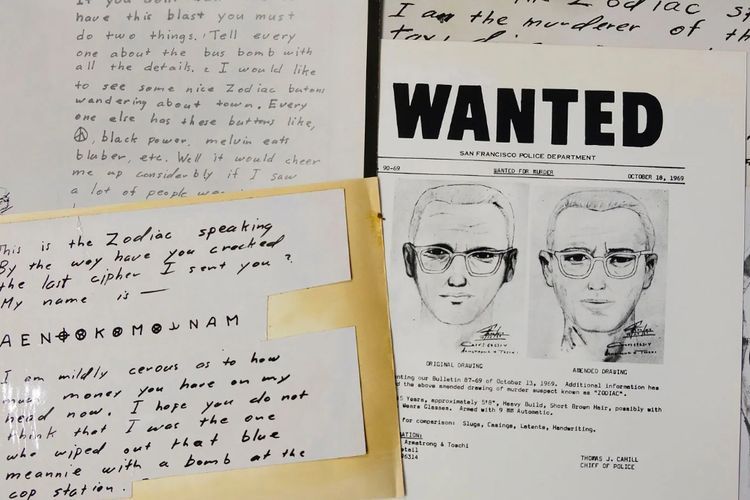 have this blast you must
do two things. Tell every
one about the bus bomb with
all the details. 2 I would like
to see some nice Zodiac butons
wandering about town. Every
one else has these buttons like,
☮, black power, melvin eats
bluber, etc. Well it would cheer
me up considerbly if I saw
a lot of people
This is the Zodiac speaking
By the way have you cracked
the last cipher I sent you?
My name is —
A E N ⊕ ⊗ K ⊗ M ⊗ ⅃ N A M
I am mildly cerous as to how
much money you have on my
head now. I hope you do not
think that I was the one
who wiped out that blue
meannie with a bomb at the
cop station.
I am the murderer of the
WANTED
SAN FRANCISCO POLICE DEPARTMENT
90-69 WANTED FOR MURDER OCTOBER 18, 1969
ORIGINAL DRAWING AMENDED DRAWING
nting our Bulletin 87-69 of October 13, 1969. Additional information has
d the above amended drawing of murder suspect known as "ZODIAC".
5 Years, approximately 5'8", Heavy Build, Short Brown Hair, possibly with
Wears Glasses. Armed with 9 MM Automatic.
for comparison: Slugs, Casings, Latents, Handwriting.
ATION:
Armstrong & Toschi
etail
96314
THOMAS J. CAHILL
CHIEF OF POLICE